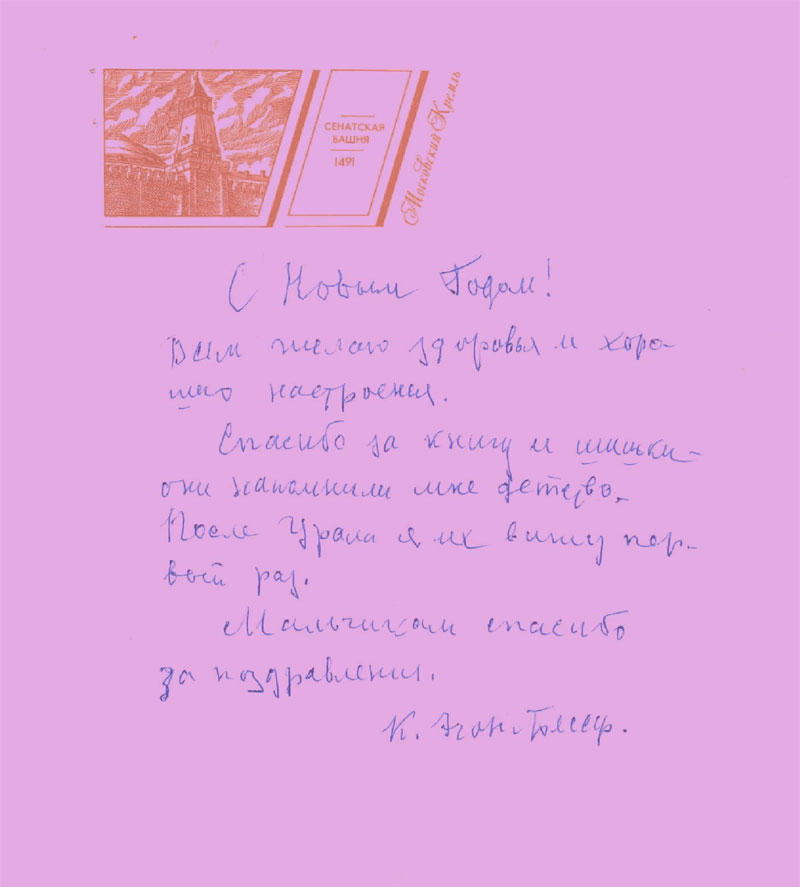 СЕНАТСКАЯ
БАШНЯ
1491
Московский Кремль
С Новым Годом!
Всем желаю здоровья и хоро-
шего настроения.
Спасибо за книгу и шишки –
они напомнили мне детство.
После Урала я их вижу пер-
вый раз.
Мальчикам спасибо
за поздравления.
К.